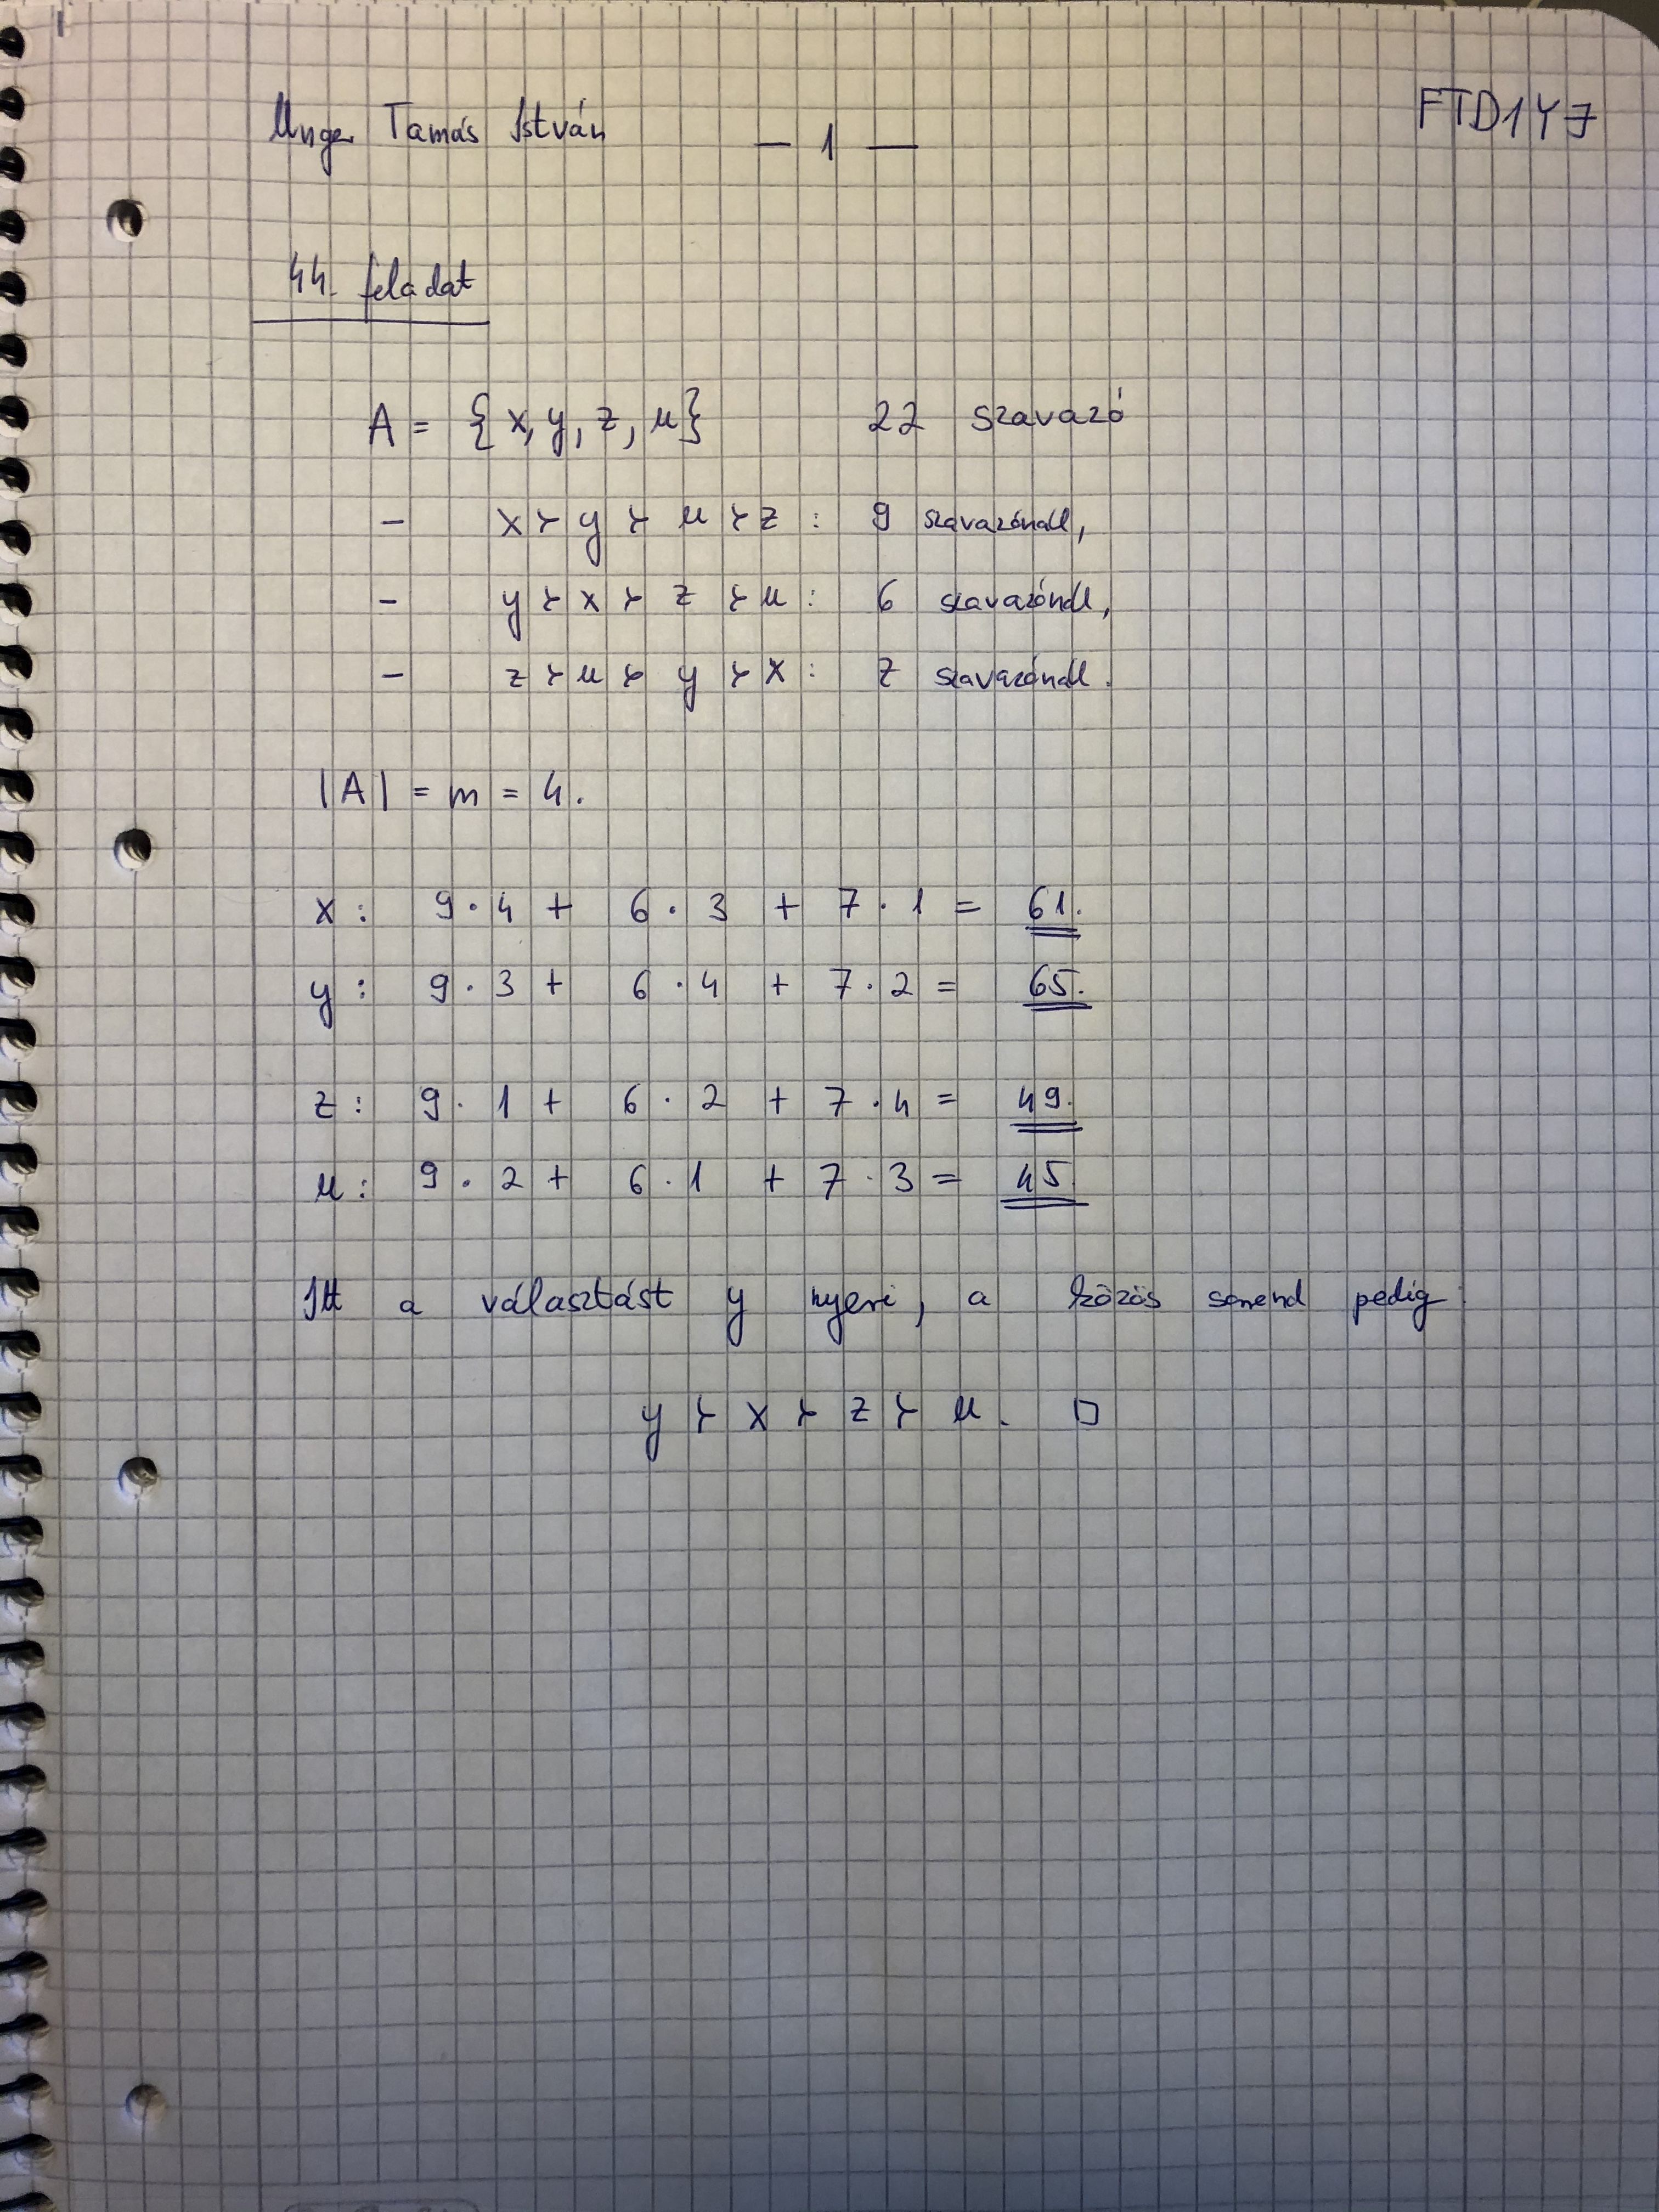 Unger Tamás István — 1 — FTD1Y7
44. feladat
A = {x, y, z, u} 22 szavazó
- x ≻ y ≻ u ≻ z : 9 szavazónál,
- y ≻ x ≻ z ≻ u : 6 szavazónál,
- z ≻ u ≻ y ≻ x : 7 szavazónál.
|A| = m = 4.
x : 9 · 4 + 6 · 3 + 7 · 1 = 61.
y : 9 · 3 + 6 · 4 + 7 · 2 = 65.
z : 9 · 1 + 6 · 2 + 7 · 4 = 49.
u : 9 · 2 + 6 · 1 + 7 · 3 = 45.
Itt a választást y nyeri, a közös sorrend pedig:
y ≻ x ≻ z ≻ u. □